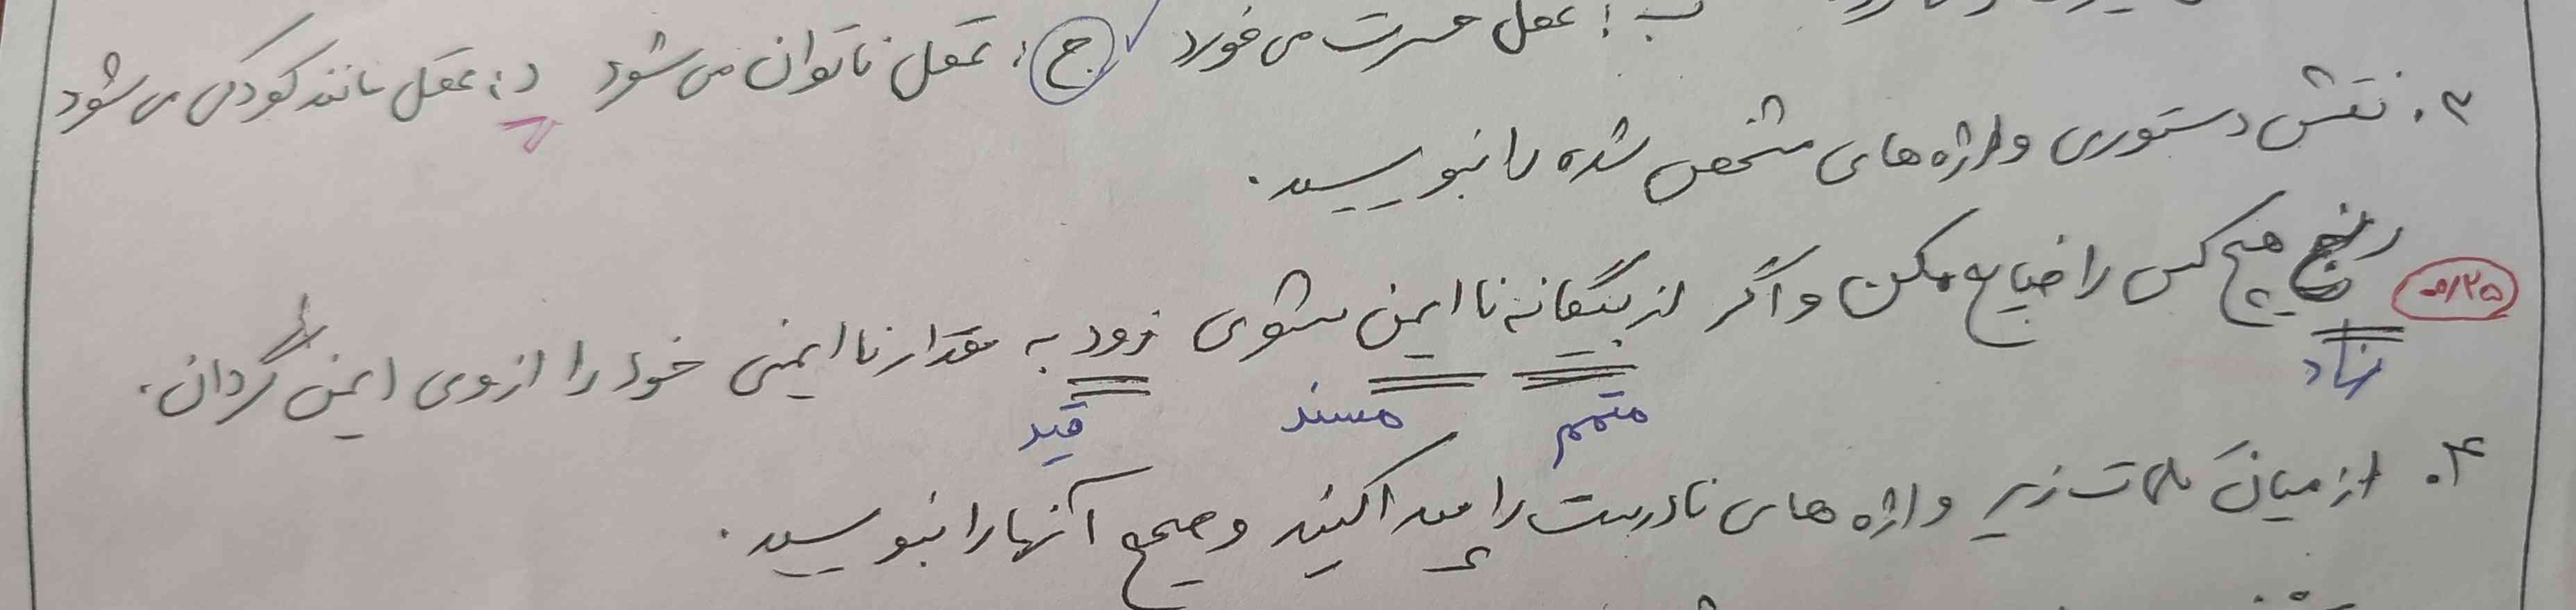 ب: عقل حسرت می خورد ج: عقل ناتوان می شود د: عقل مانند کودکی می شود
۳. نقش دستوری واژه های مشخص شده را بنویسید.
رنج هیچ کس را ضایع مکن و اگر از بیگانه نا ایمن شوی زود به مقدار نا ایمنی خود را از وی ایمن گردان.
۰/۲۵
نهاد متمم مسند قید
۴. از میان کلمات زیر واژه های نادرست را پیدا کنید و صحیح آنها را بنویسید.